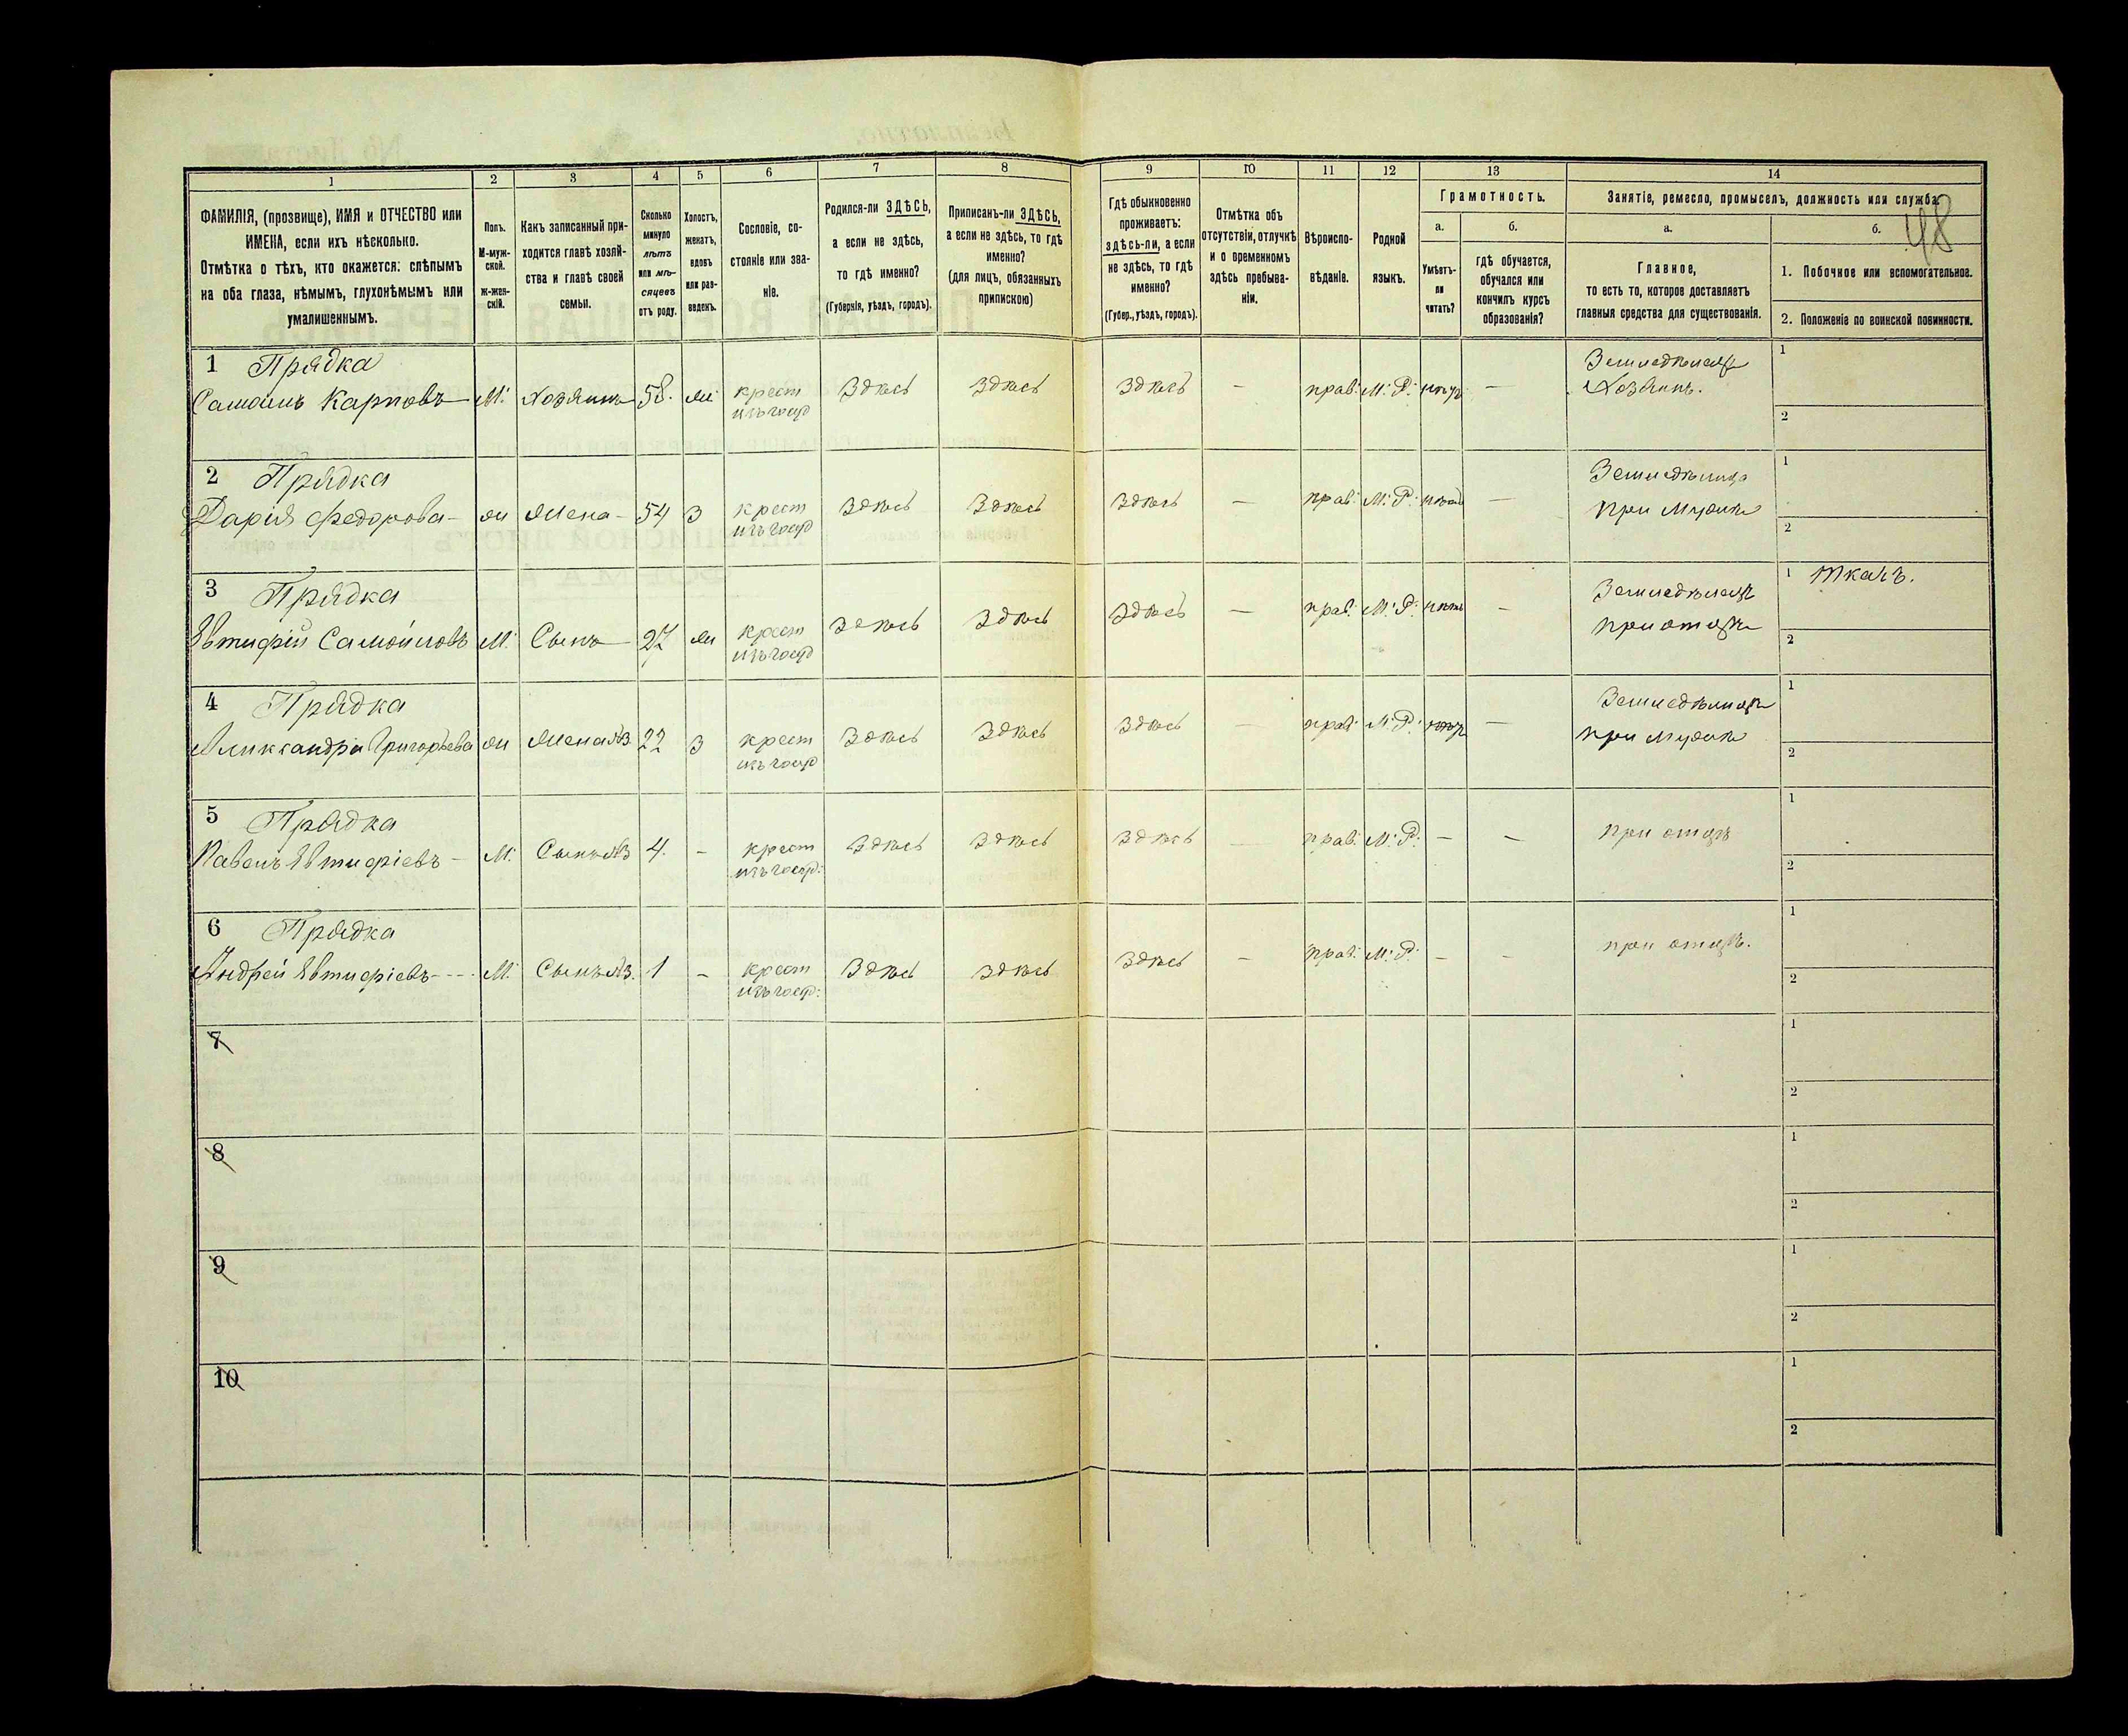 48
1 2 3 4 5 6 7 8 9 10 11 12 13 14
ФАМИЛІЯ, (прозвище), ИМЯ и ОТЧЕСТВО или
ИМЕНА, если ихъ нѣсколько.
Отмѣтка о тѣхъ, кто окажется: слѣпымъ
на оба глаза, нѣмымъ, глухонѣмымъ или
умалишеннымъ.
Полъ.
М-муж-
ской.
ж-жен-
скій.
Какъ записанный при-
ходится главѣ хозяй-
ства и главѣ своей
семьи.
Сколько
минуло
лѣтъ
или мѣ-
сяцевъ
отъ роду.
Холостъ,
женатъ,
вдовъ
или раз-
веденъ.
Сословіе, со-
стояніе или зва-
ніе.
Родился-ли ЗДѢСЬ,
а если не здѣсь,
то гдѣ именно?
(Губернія, уѣздъ, городъ).
Приписанъ-ли ЗДѢСЬ,
а если не здѣсь, то гдѣ
именно?
(для лицъ, обязанныхъ
припискою)
Гдѣ обыкновенно
проживаетъ:
здѣсь-ли, а если
не здѣсь, то гдѣ
именно?
(Губер., уѣздъ, городъ).
Отмѣтка объ
отсутствіи, отлучкѣ
и о временномъ
здѣсь пребыва-
ніи.
Вѣроиспо-
вѣданіе.
Родной
языкъ.
Грамотность.
а.
Умѣетъ-
ли
читать?
б.
гдѣ обучается,
обучался или
кончилъ курсъ
образованія?
Занятіе, ремесло, промыселъ, должность или служба.
а.
Главное,
то есть то, которое доставляетъ
главныя средства для существованія.
б.
1. Побочное или вспомогательное.
2. Положеніе по воинской повинности.
1 Прядка Земледѣлецъ 1
Самоилъ Карповъ М. Хозяинъ 58. ж крест Здѣсь Здѣсь Здѣсь – прав. М. Р. нѣтъ – Хозяинъ.
изъ госуд 2
2 Прядка Земледѣлица 1
Дарія Федорова – ж Жена – 54 З крест Здѣсь Здѣсь Здѣсь – прав. М. Р. нѣтъ – при Мужѣ
изъ госуд 2
3 Прядка Земледѣлецъ 1 Ткачъ.
Евтифій Самойловъ М. Сынъ 27 ж крест Здѣсь Здѣсь Здѣсь – прав. М. Р. нѣтъ – при отцѣ
изъ госуд 2
4 Прядка Земледѣлица 1
Александра Григорьева ж Жена №3 22 З крест Здѣсь Здѣсь Здѣсь – прав. М. Р. нѣтъ – при Мужѣ
изъ госуд 2
5 Прядка 1
Павелъ Евтифіевъ – М. Сынъ №3 4. – крест Здѣсь Здѣсь Здѣсь – прав. М. Р. – – при отцѣ
изъ госуд. 2
6 Прядка 1
Андрей Евтифіевъ М. Сынъ №3. 1 – крест Здѣсь Здѣсь Здѣсь – прав. М. Р. – – при отцѣ.
изъ госуд. 2
7 1
2
8 1
2
9 1
2
10 1
2